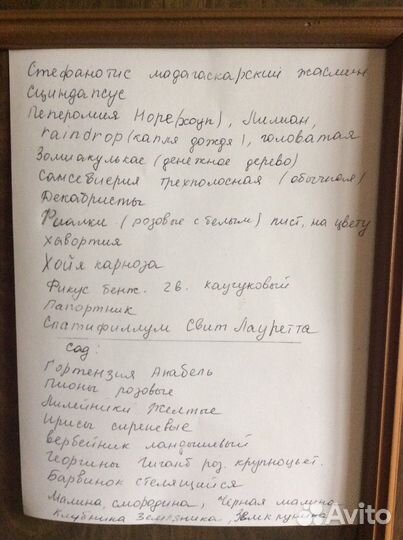 Стефанотис мадагаскарский жасмин
Сциндапсус
Пеперомия Hope (хоуп), Лилиан,
raindrop (капля дождя), головатая
Замиакулькас (денежное дерево)
Сансевиерия трехполосная (обычная)
Декабристы
Фиалки (розовые с белым) лист, на цвету
Хавортия
Хойя карноза
Фикус бенж. 2 в. каучуковый
Папортник
Спатифиллум Свит Лауретта
Сад:
Гортензия Анабель
Пионы розовые
Лилейники желтые
Ирисы сиреневые
Вербейник ландышевый
Георгины Гигант роз. крупноцвет.
Барвинок стелящийся
Малина, смородина, Черная малина
Клубника Земляника,
Avito